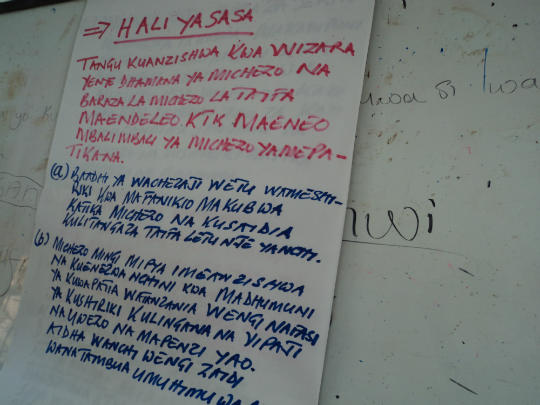 ⇒ HALI YA SASA
TANGU KUANZISHWA KWA WIZARA
YENYE DHAMANA YA MICHEZO NA
BARAZA LA MICHEZO LA TAIFA
MAENDELEO KTK MAENEO
MBALIMBALI YA MICHEZO YAMEPA-
TIKANA.
(a) BAADHI YA WACHEZAJI WETU WAMESHI-
RIKI KWA MAFANIKIO MAKUBWA
KATIKA MICHEZO NA KUSAIDIA
KULITANGAZA TAIFA LETU NJE YANCHI.
(b) MICHEZO MINGI MIPYA IMEANZISHWA
NA KUENEZWA NCHINI KWA MADHUMUNI
YA KUWAPATIA WATANZANIA WENGI NAFASI
YA KUSHIRIKI KULINGANA NA VIPAJI
NA UWEZO NA MAPENZI YAO.
AIDHA WANCHI WENGI ZAIDI
WANATAMBUA UMUHIMU WA
wa